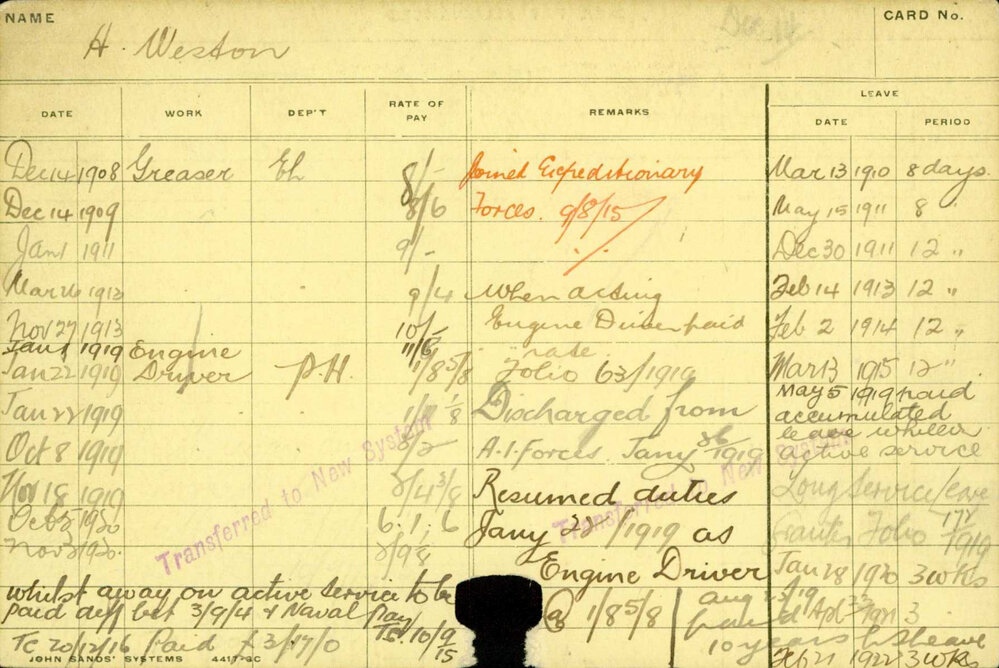 NAME
H. Weston
CARD No.
DATE WORK DEP'T RATE OF PAY REMARKS LEAVE DATE PERIOD
Dec 14 1908 Greaser EL 8/-
Dec 14 1909 8/6
Jan 1 1911 9/-
Mar 1913 9/4
Nov 27 1913 10/-
Jan 1 1919 Engine 11/6
Jan 22 1919 Driver P.H. 1/8 5/8
Jan 22 1919
Oct 8 1919
Nov 18 1919 /4 3/8
Oct 1920 6.1.6
Nov 1920
Joined Expeditionary
Forces. 9/8/15
When acting
Engine Driver paid
rate
Folio 63/1919
Discharged from
A.I. Forces Jany 1919
Resumed duties
Jany 22/1919 as
Engine Driver
@ 1/8 5/8
Mar 13 1910 8 days.
May 15 1911 8 "
Dec 30 1911 12 "
Feb 14 1913 12 "
Feb 2 1914 12 "
Mar 13 1915 12 "
May 5 1919 paid
accumulated
leave whilst
active service
Long Service leave
Folio 1919
Jan 28 1920 3 wks
Apl 1921 3
10 years
Feb 21 1922 3 wks
Transferred to New System
Transferred to New System
whilst away on active service to be
paid diff bet 3/9/4 & Naval Pay
TC 10/9/15
TC 20/12/16 Paid £3/17/0
JOHN SANDS' SYSTEMS 4417-3C